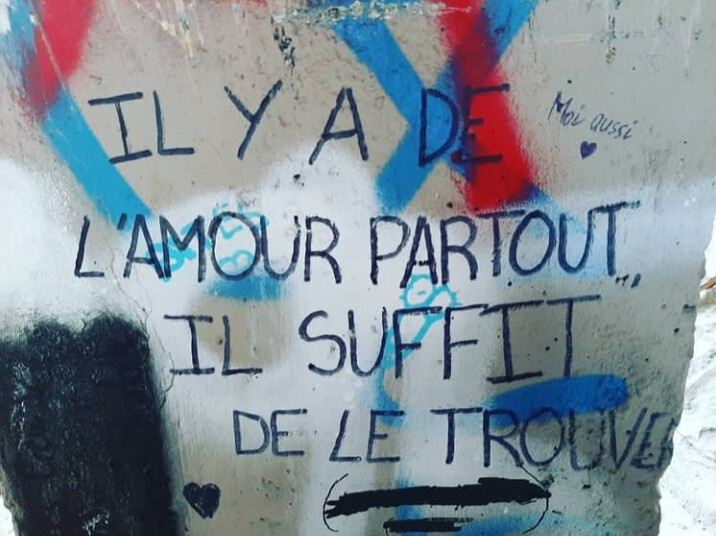 IL Y A DE
Moi aussi
L'AMOUR PARTOUT...
IL SUFFIT
DE LE TROUVER